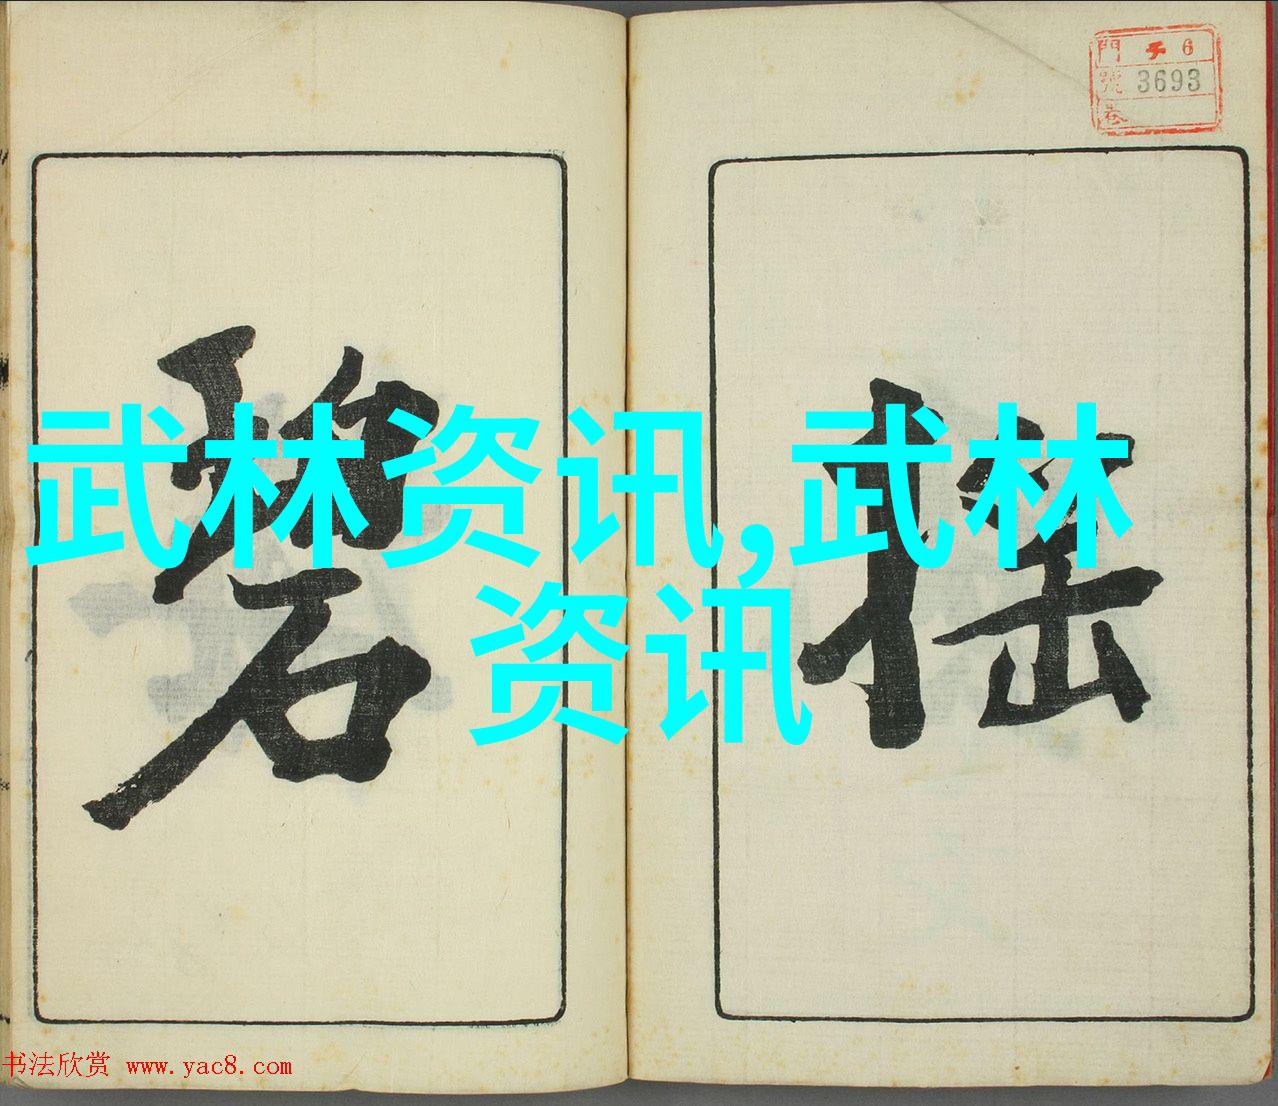 門 チ 6
號 3693
巻
搖
碧
武林资讯,武林
资讯
书法欣赏 www.yac8.com